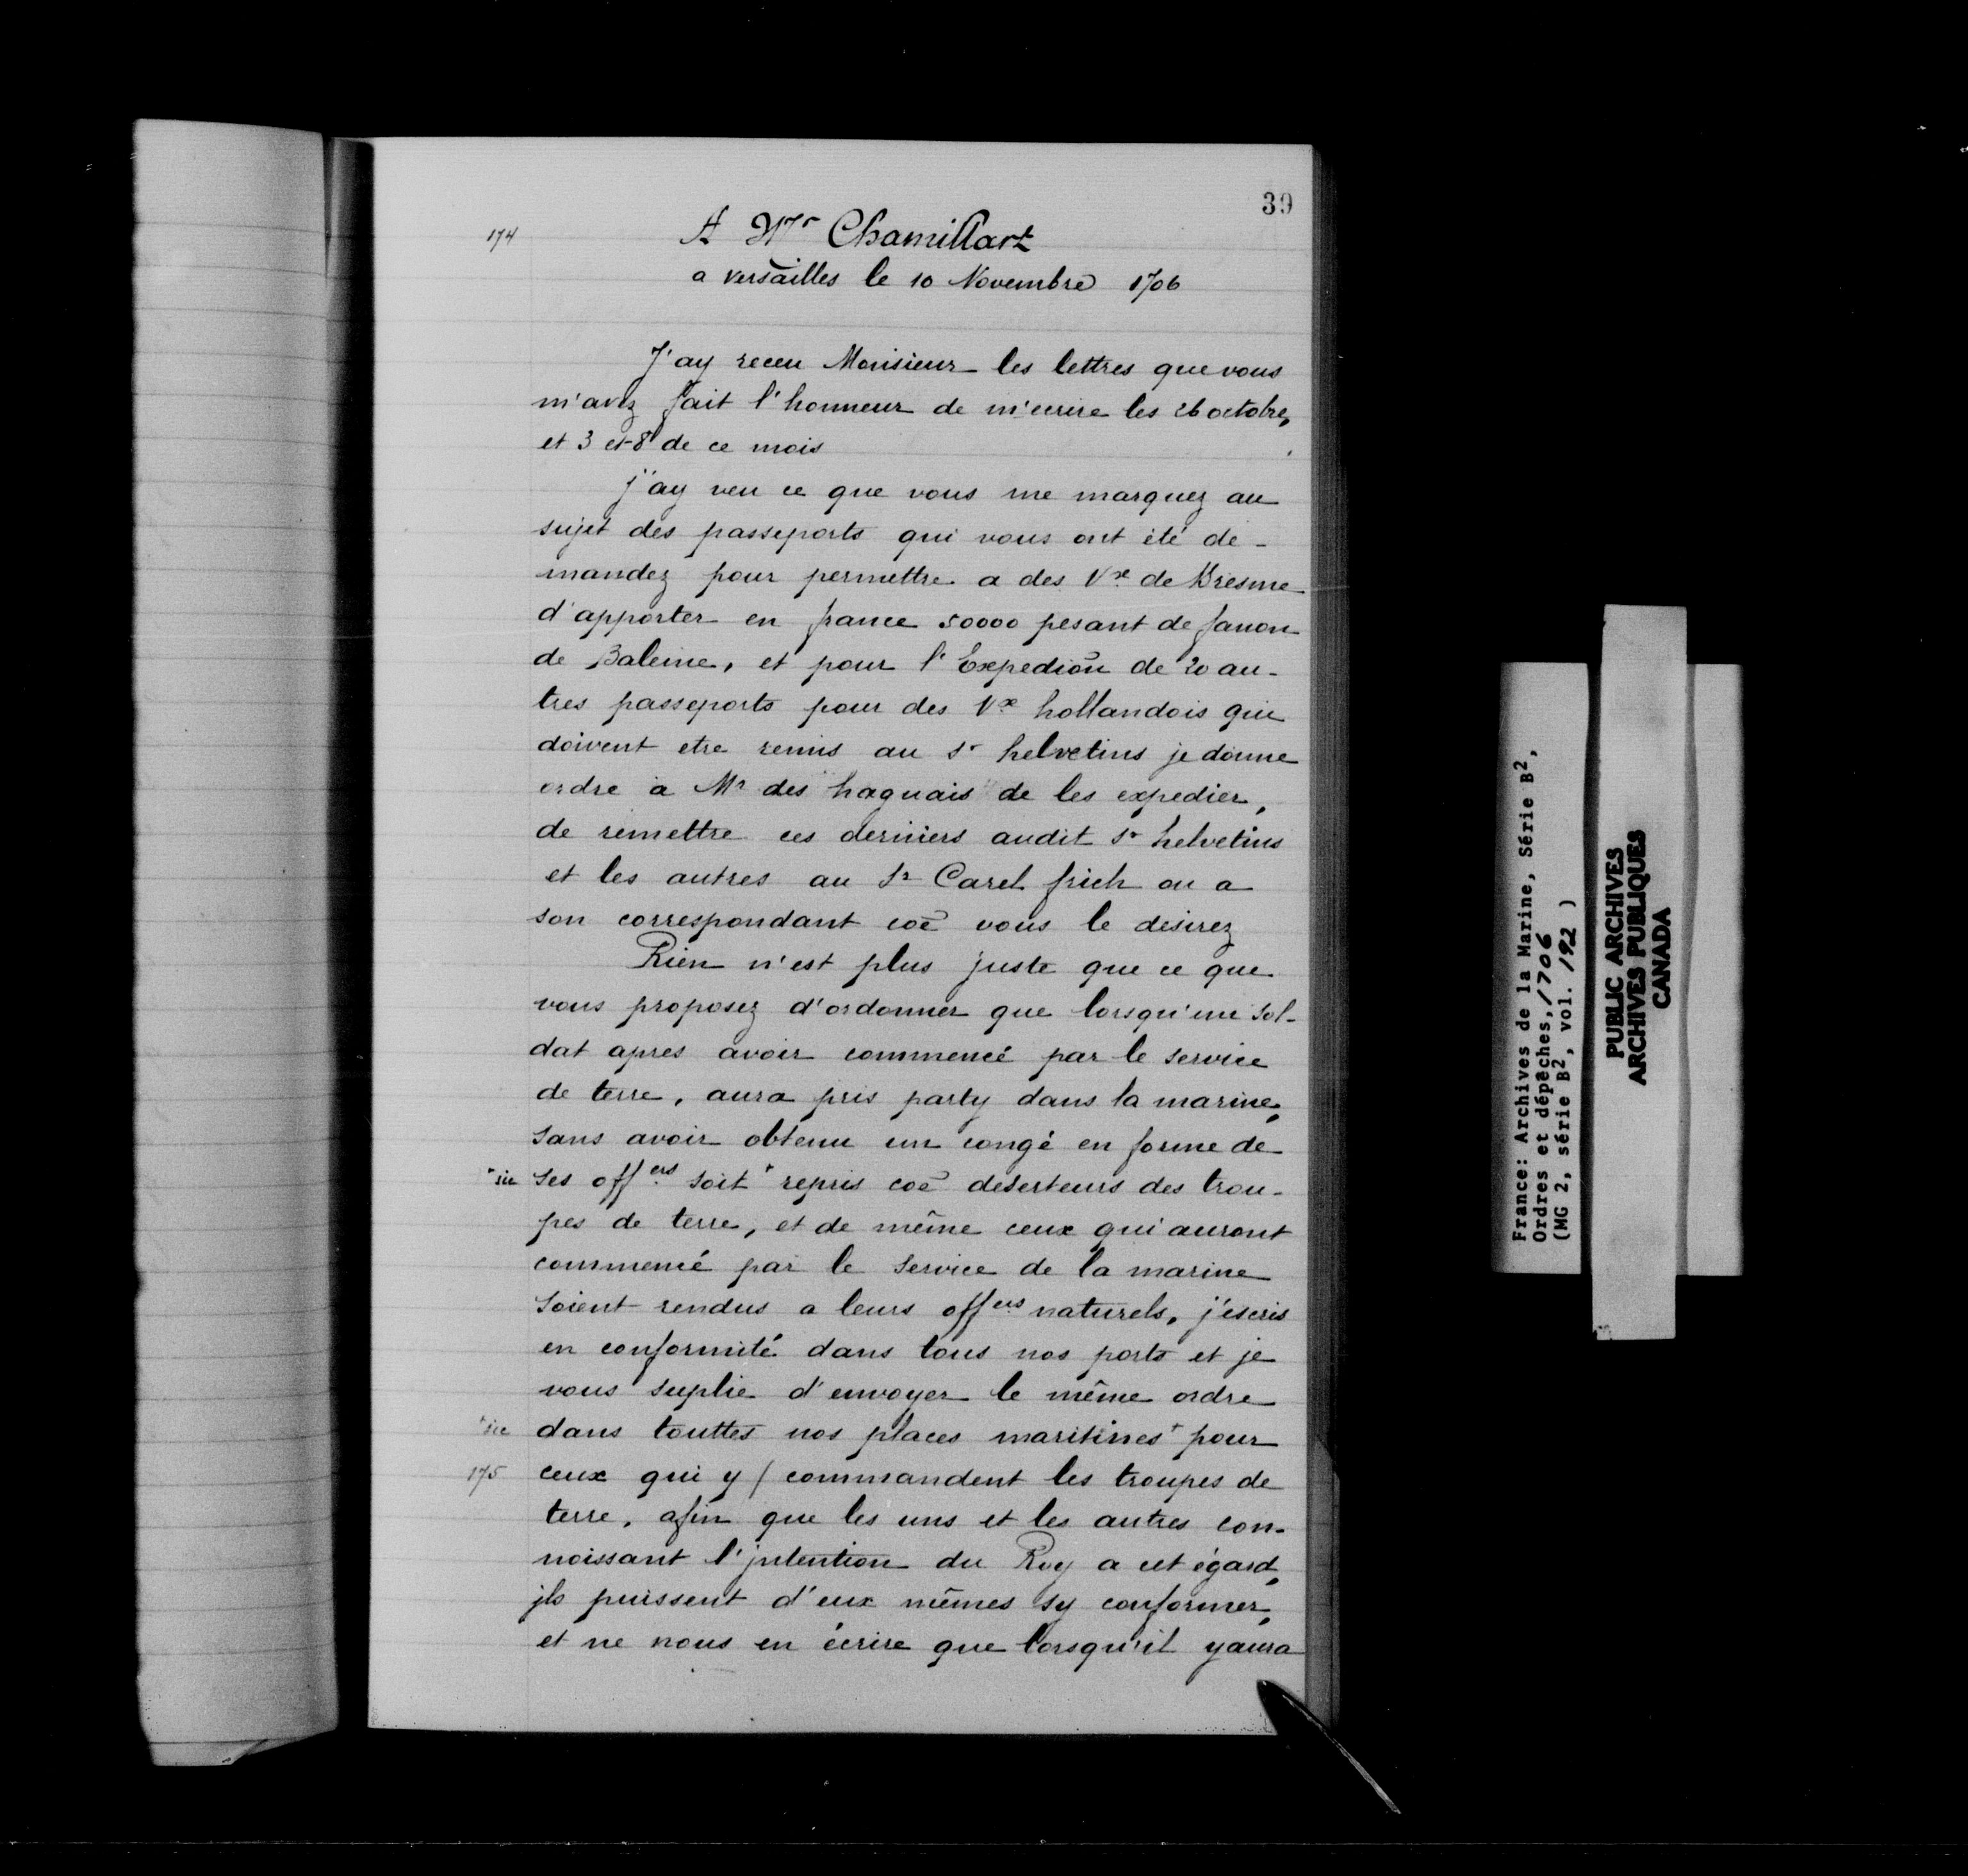 39
174
A Mr Chamillart
a versailles le 10 Novembre 1706
J'ay receu Monsieur les lettres que vous
m'avez fait l'honneur de m'ecrire les 26 octobre,
et 3 et 8 de ce mois
j'ay veu ce que vous me marquez au
sujet des passeports qui vous ont été de-
mandez pour permettre a des Vx de Bresme
d'apporter en france 50000 pesant de fanon
de Baleine, et pour l'Expedion de 20 au-
tres passeports pour des Vx hollandois qui
doivent etre remis au sr helvetius je donne
ordre a Mr des haguais de les expedier,
de remettre ces derniers audit sr helvetius
et les autres au Sr Carel frich ou a
son correspondant coe vous le desirez
Rien n'est plus juste que ce que
vous proposez d'ordonner que lorsqu'un sol-
dat apres avoir commencé par le service
de terre, aura pris party dans la marine,
sans avoir obtenu un congé en forme de
+sic ses offers soit + repris coe deserteurs des trou-
pes de terre, et de même ceux qui auront
commencé par le service de la marine
soient rendus a leurs offers naturels, j'escris
en conformité dans tous nos ports et je
vous suplie d'envoyer le même ordre
+sic dans touttes nos places maritines + pour
175 ceux qui y / commandent les troupes de
terre, afin que les uns et les autres con-
noissant l'jntention du Roy a cet égard,
jls puissent d'eux mêmes sy conformer,
et ne nous en écrire que lorsqu'il y aura
France: Archives de la Marine, Série B2,
Ordres et dépêches, 1706
(MG 2, série B2, vol. 192 )
PUBLIC ARCHIVES
ARCHIVES PUBLIQUES
CANADA